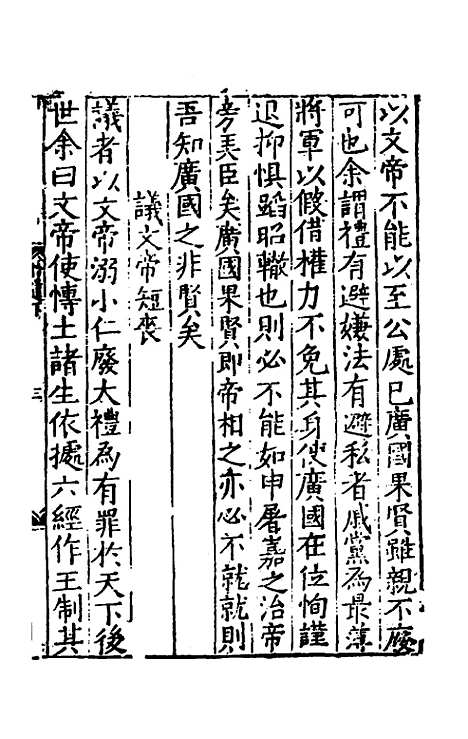 以文帝不能以至公處已廣國果賢雖親不廢
可也余謂禮有避嫌法有避私者戚黨為最薄
將軍以假借權力不免其身使廣國在位恂謹
退抑惧蹈昭轍也則必不能如申屠嘉之治帝
旁美臣矣廣國果賢即帝相之亦必不就就則
吾知廣國之非賢矣
議文帝短喪
議者以文帝溺小仁廢大禮為有罪於天下後
世余曰文帝使博士諸生依據六經作王制其
三